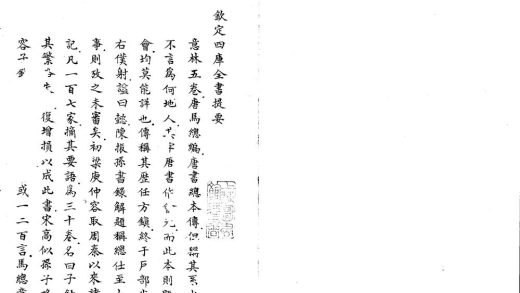 欽定四庫全書提要
意林五卷唐馬總編唐書總本傳但稱其系
不言爲何地人其字唐書作元而此本則
會均莫能詳也傳稱其歷任方鎮終于戶部
右僕射諡曰懿陳振孫書錄解題稱總仕至
事則攷之未審矣初梁庾仲容取周秦以來諸
記凡一百七家摘其要語爲三十卷名曰子
其繁復增損以成此書宋高似孫子
容子或一二百言馬總意